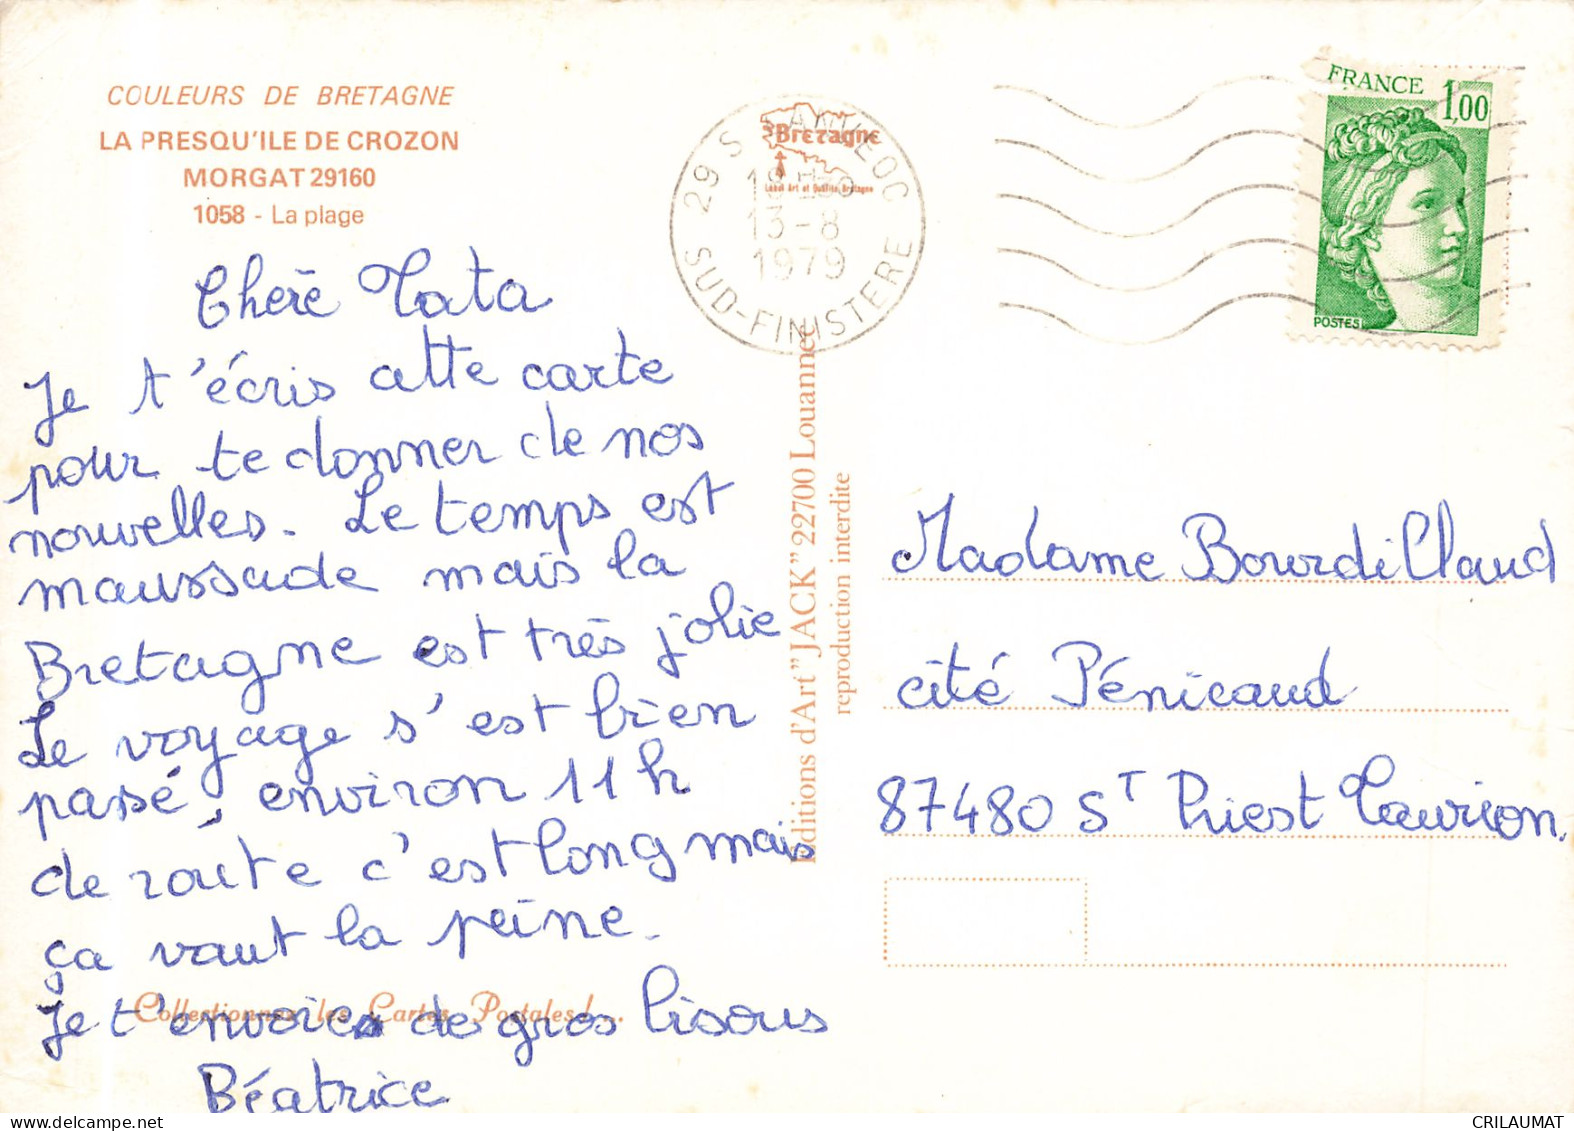 COULEURS DE BRETAGNE
LA PRESQU'ILE DE CROZON
MORGAT 29160
1058 - La plage
Chère Tata
Je t'écris cette carte
pour te donner de nos
nouvelles. Le temps est
maussade mais la
Bretagne est très jolie
Le voyage s'est bien
passé, environ 11h
de route c'est long mais
ça vaut la peine.
Je t'envoie de gros bisous
Béatrice
Collectionnez les Cartes Postales!...
Editions d'Art "JACK" 22700 Louannec
reproduction interdite
Bretagne
Label Art et Qualité Bretagne
29 S LANVEOC
13-8
1979
SUD-FINISTERE
FRANCE 1,00
POSTES
Madame Bourdillaud
cité Pénicaud
87480 ST Priest Taurion.
CRILAUMAT